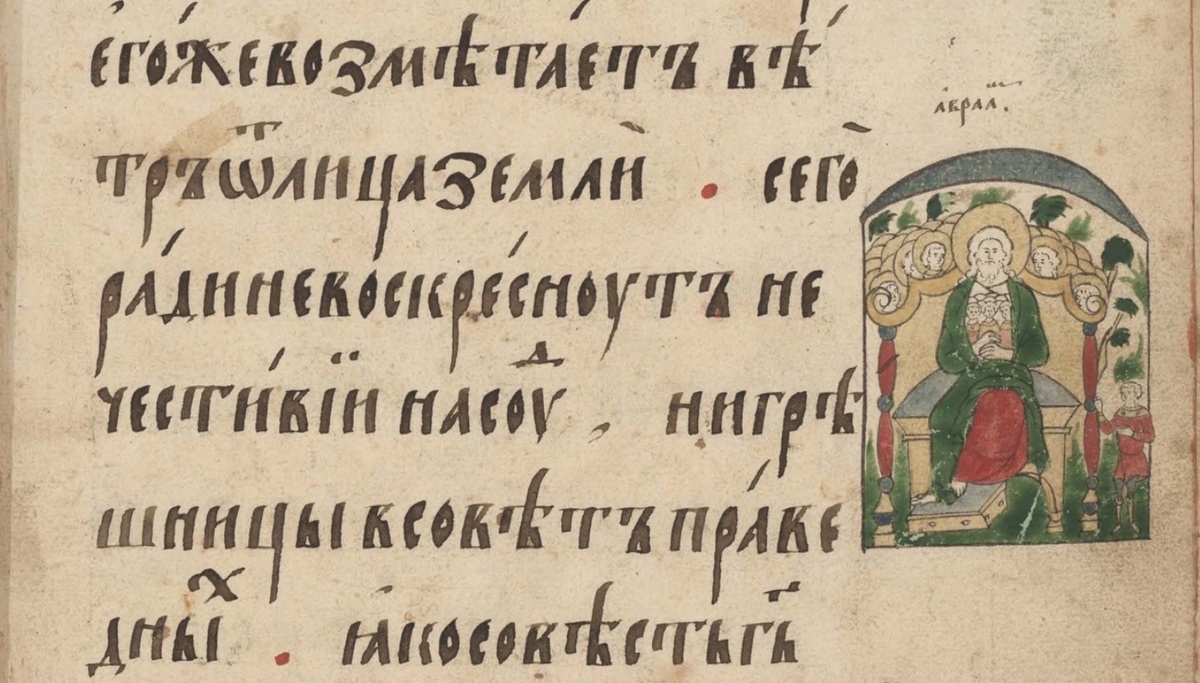 его́жевозмѣта́етъ вѣ́
авраа́ⷨ.
тръѿⷮлицаземлѝ . сего̀
ра́диневоскре́сноутъ не
чести́вїи насоуⷣ , нигрѣ́
шницы всовѣ́тъ пра́ве
дныⷯ . ꙗ́косовѣ́стьгⷭ҇ь